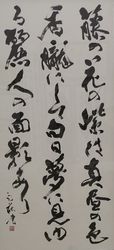 藤のは花の紫は真昼の色
香朧にして白日夢に見ゆ
る麗人の面影あり